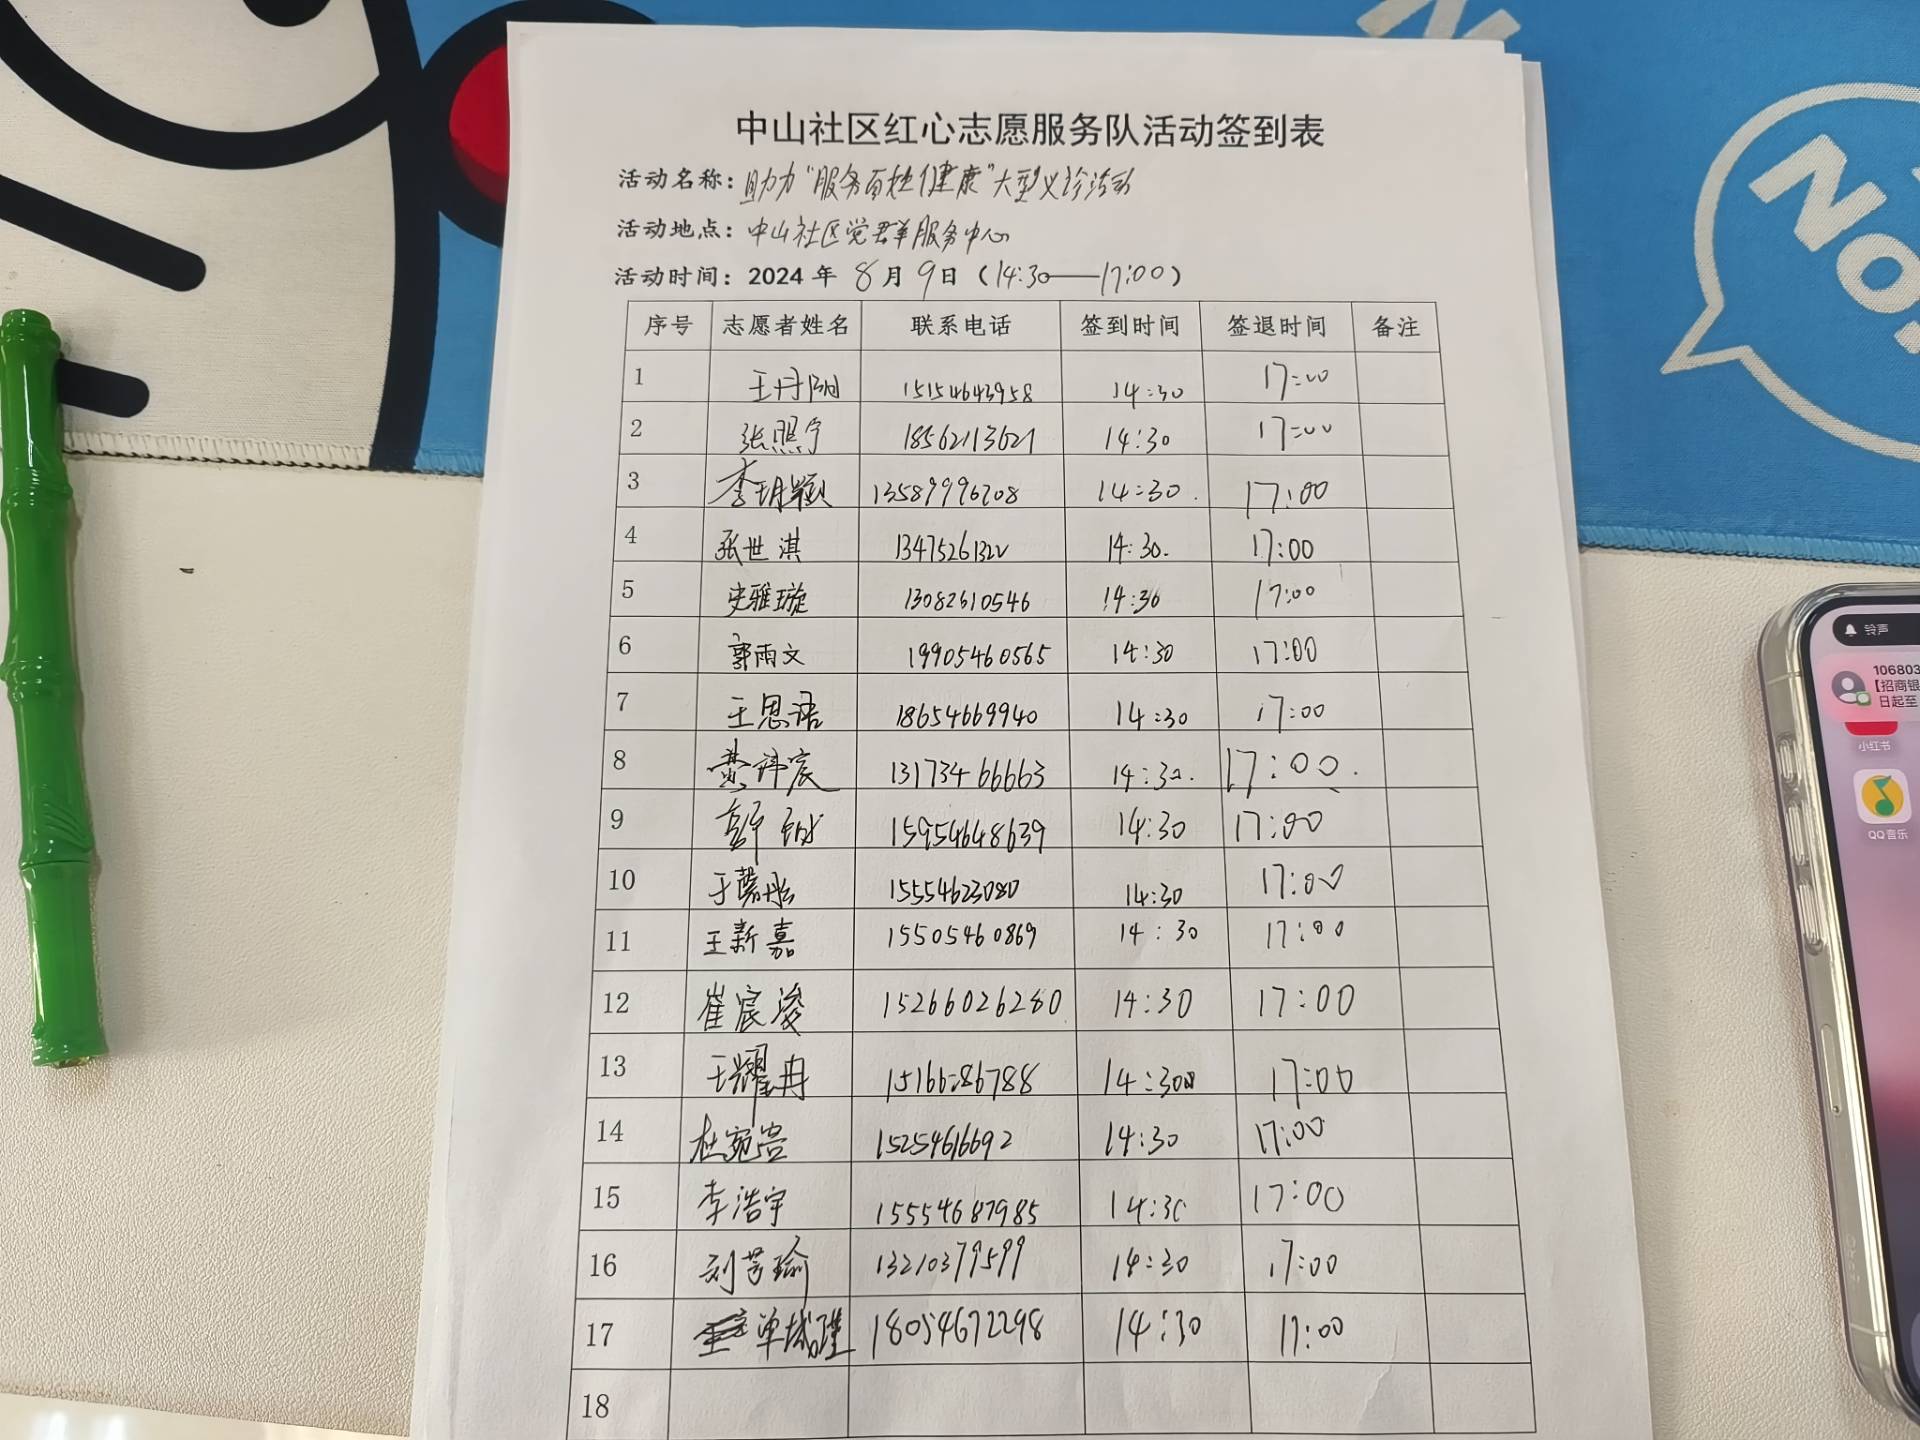 中山社区红心志愿服务队活动签到表
活动名称：助力“服务百姓健康”大型义诊活动
活动地点：中山社区党群服务中心
活动时间：2024 年 8月 9日（14:30——17:00）
序号 志愿者姓名 联系电话 签到时间 签退时间 备注
1 王丹阳 15154643958 14:30 17:00
2 张照宁 18562113621 14:30 17:00
3 李玥颖 13589996708 14:30. 17:00
4 张世淇 13475261322 14:30. 17:00
5 史雅璇 13082610546 14:30 17:00
6 郭雨文 19905460565 14:30 17:00
7 王思语 18654669940 14:30 17:00
8 13173466663 14:30. 17:00.
9 15954648639 14:30 17:00
10 于馨彤 15554623080 14:30 17:00
11 王新嘉 15505460869 14:30 17:00
12 崔宸浚 15266026280 14:30 17:00
13 王耀冉 14:30 17:00
14 杜宛 15254616692 14:30 17:00
15 李浩宇 15554687985 14:30 17:00
16 刘芸瑜 13210379599 14:30 17:00
17 单 18054672298 14:30 17:00
18
NO
铃声
106803
【招商银
日起至
小红书
QQ音乐